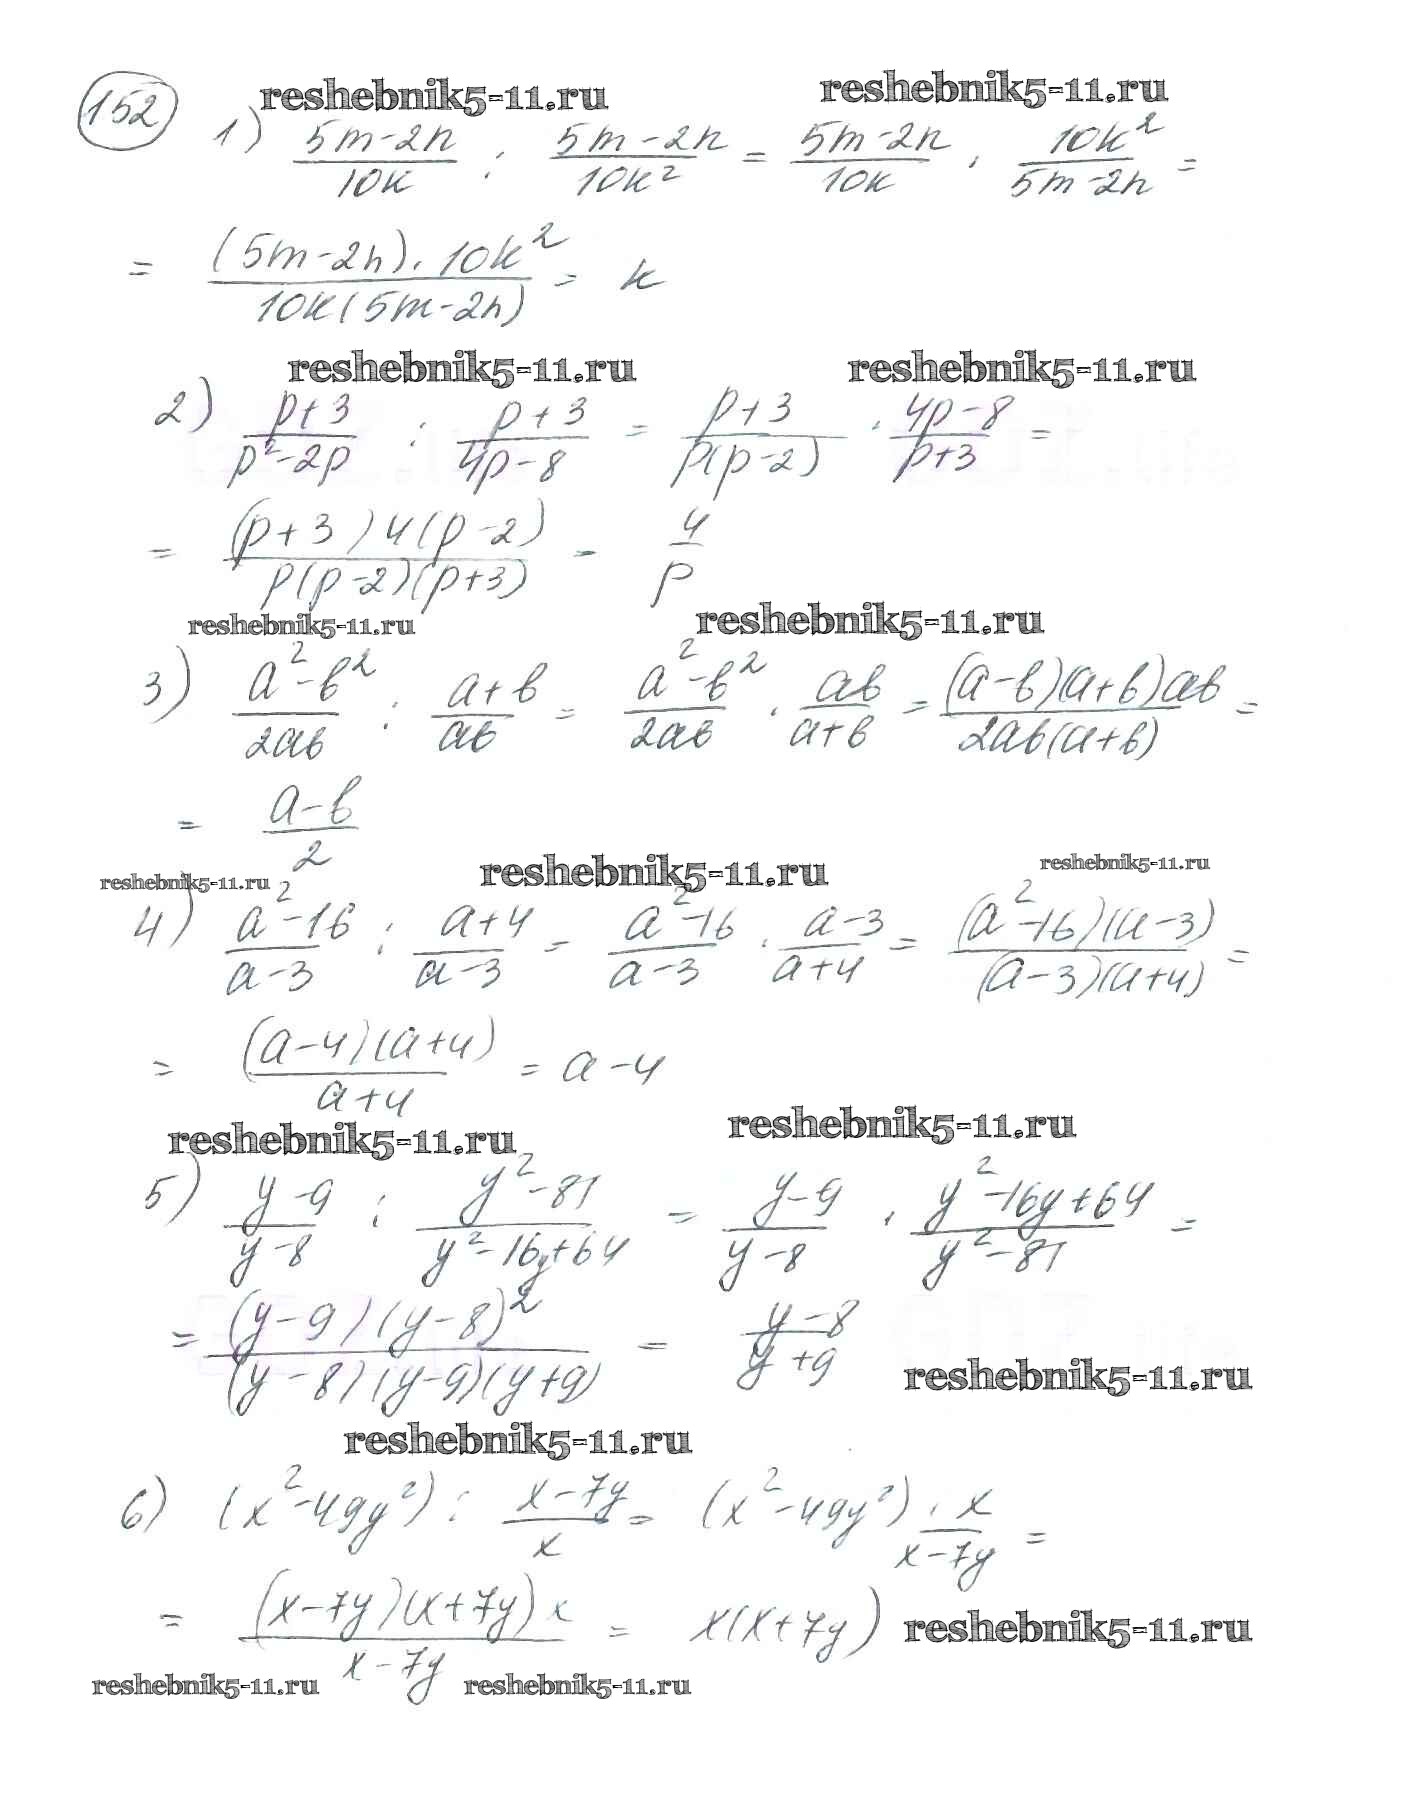 152
reshebnik5-11.ru reshebnik5-11.ru
1) (5m-2n)/(10k) : (5m-2n)/(10k²) = (5m-2n)/(10k) · (10k²)/(5m-2n) =
= ((5m-2n)·10k²)/(10k(5m-2n)) = k
reshebnik5-11.ru reshebnik5-11.ru
2) (p+3)/(p²-2p) : (p+3)/(4p-8) = (p+3)/(p(p-2)) · (4p-8)/(p+3) =
= ((p+3)4(p-2))/(p(p-2)(p+3)) = 4/p
reshebnik5-11.ru reshebnik5-11.ru
3) (a²-b²)/(2ab) : (a+b)/(ab) = (a²-b²)/(2ab) · (ab)/(a+b) = ((a-b)(a+b)ab)/(2ab(a+b)) =
= (a-b)/2
reshebnik5-11.ru reshebnik5-11.ru reshebnik5-11.ru
4) (a²-16)/(a-3) : (a+4)/(a-3) = (a²-16)/(a-3) · (a-3)/(a+4) = ((a²-16)(a-3))/((a-3)(a+4)) =
= ((a-4)(a+4))/(a+4) = a-4
reshebnik5-11.ru reshebnik5-11.ru
5) (y-9)/(y-8) : (y²-81)/(y²-16y+64) = (y-9)/(y-8) · (y²-16y+64)/(y²-81) =
= ((y-9)(y-8)²)/((y-8)(y-9)(y+9)) = (y-8)/(y+9)
reshebnik5-11.ru
reshebnik5-11.ru
6) (x²-49y²) : (x-7y)/x = (x²-49y²) · x/(x-7y) =
= ((x-7y)(x+7y)x)/(x-7y) = x(x+7y)
reshebnik5-11.ru
reshebnik5-11.ru reshebnik5-11.ru